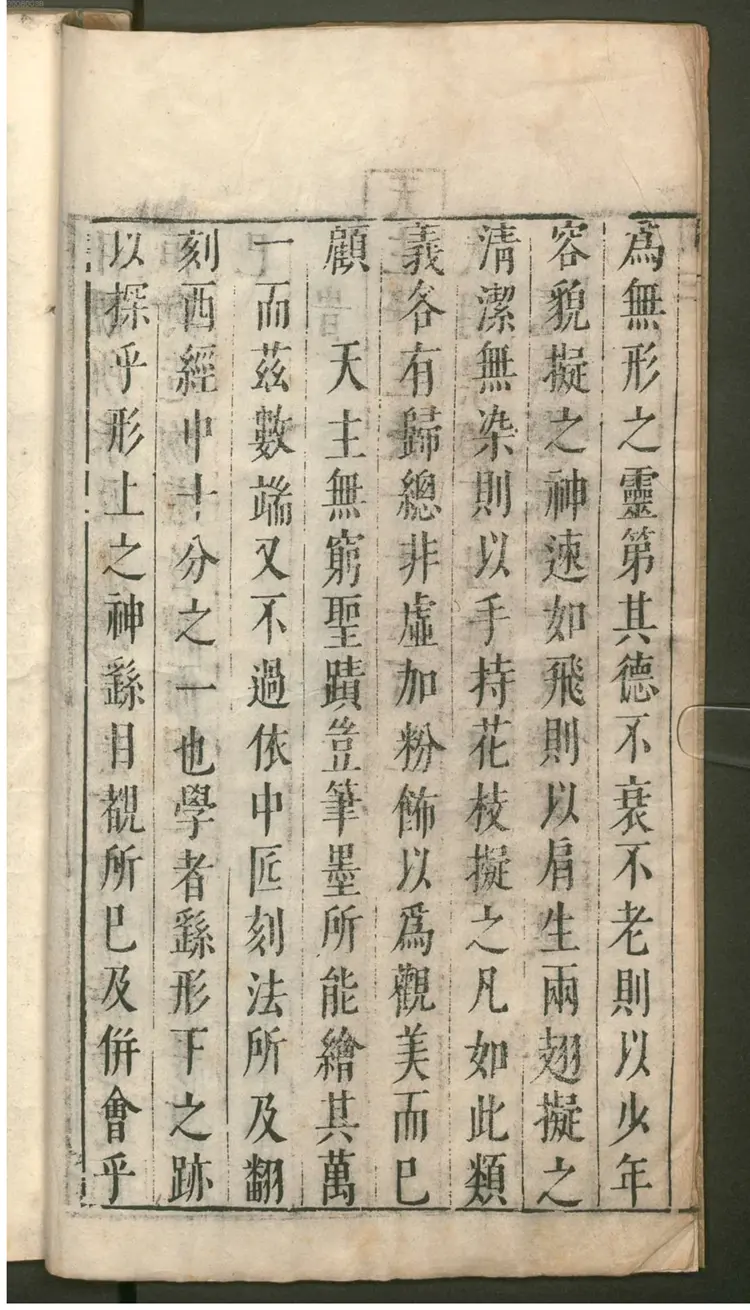 爲無形之靈第其德不衰不老則以少年
容貌擬之神速如飛則以肩生兩翅擬之
淸潔無染則以手持花枝擬之凡如此類
義各有歸總非虛加粉飾以爲觀美而已
顧　天主無窮聖蹟豈筆墨所能繪其萬
一而茲數端又不過依中匠刻法所及翻
刻西經中十分之一也學者繇形下之跡
以探乎形上之神繇目覩所已及併會乎